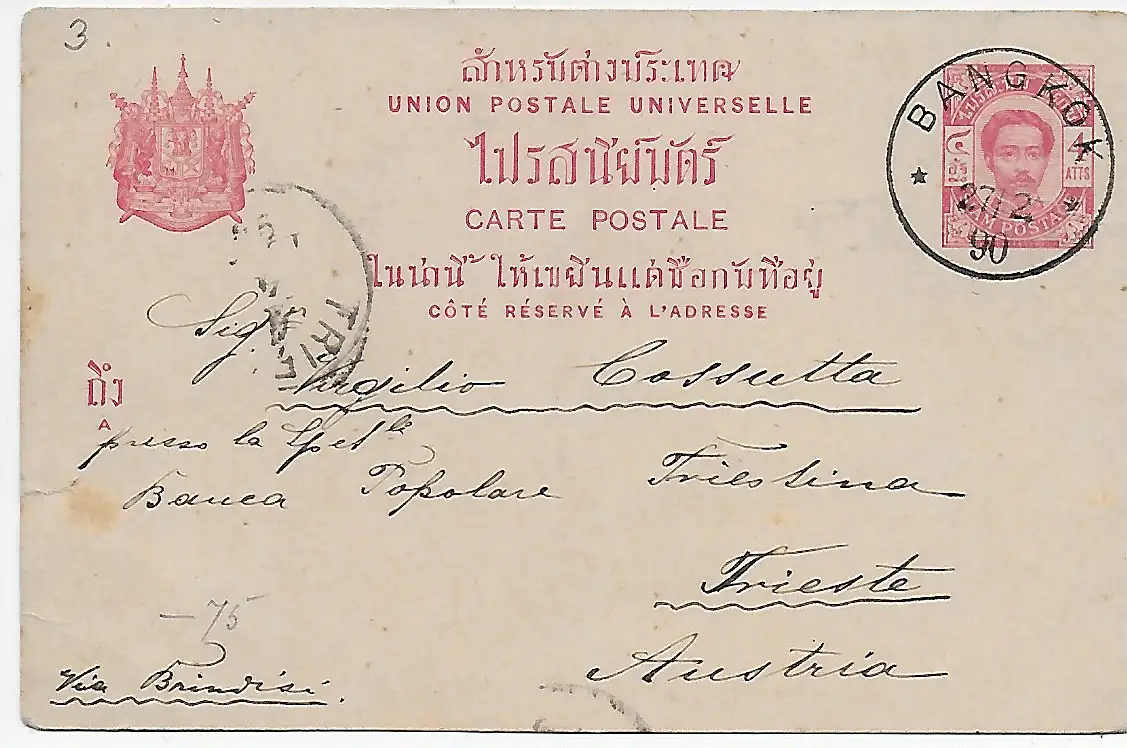 3
สำหรับต่างประเทศ
UNION POSTALE UNIVERSELLE
ไปรสนียบัตร์
CARTE POSTALE
ในน่านี้ ให้เขยีนแต่ชื่อกับที่อยู่
CÔTÉ RÉSERVÉ À L'ADRESSE
BANGKOK
27 12
90
๔
4
ATTS
TRIE
Sigr
Virgilio Cossutta
ถึง
A
presso la Spetle
Banca Popolare Triestina
Trieste
Austria
-75
Via Brindisi.